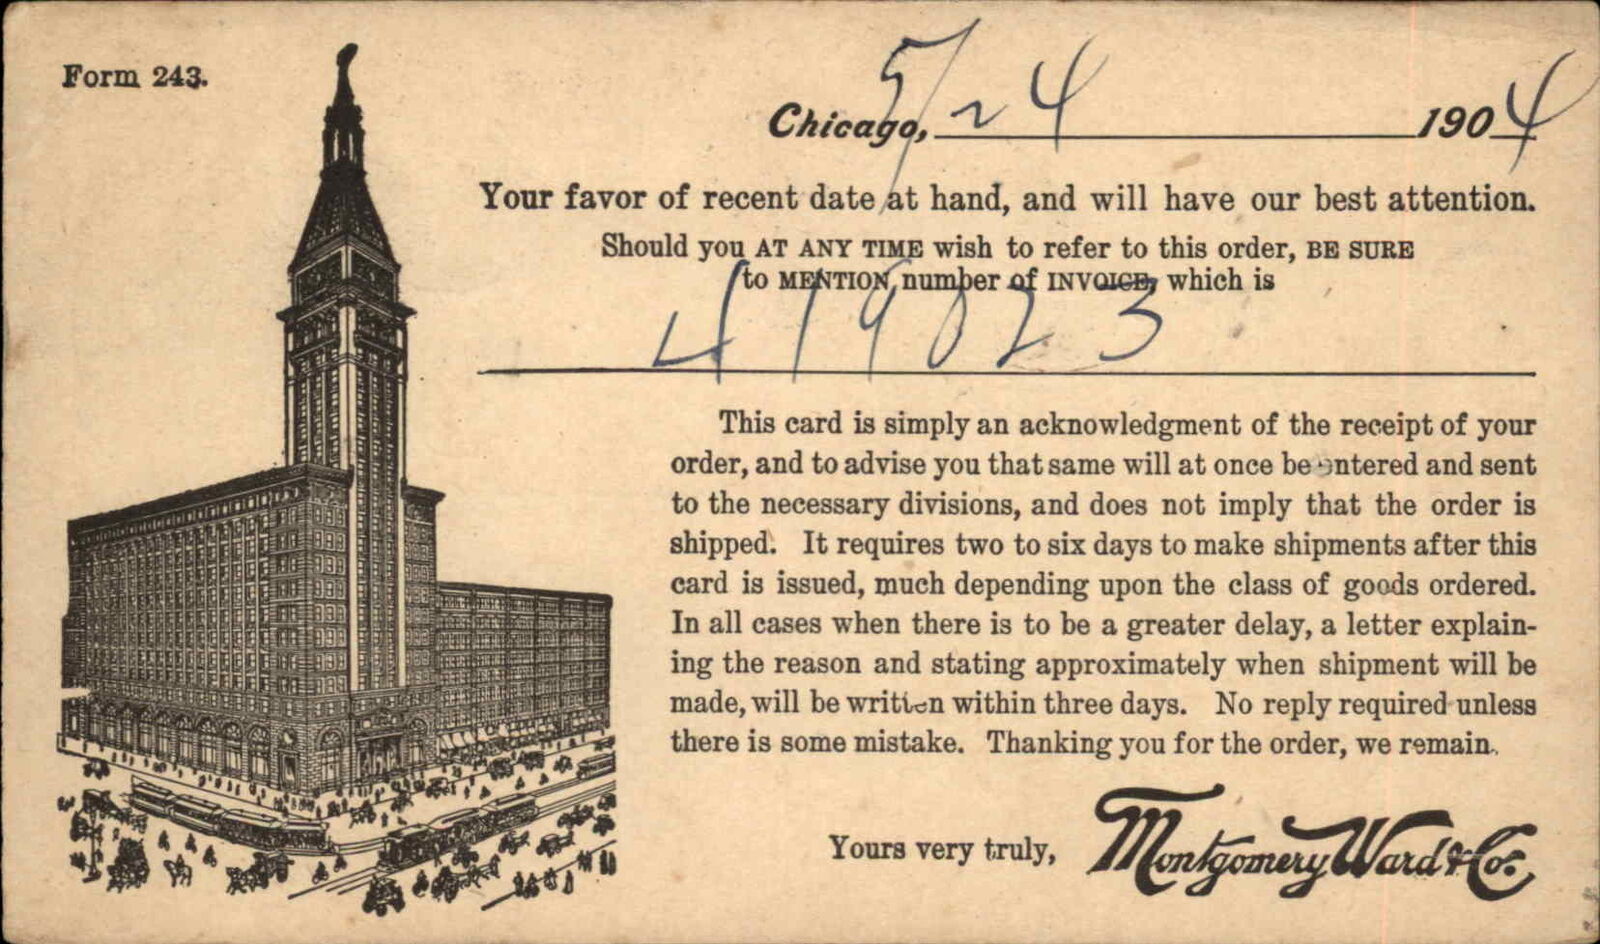 Form 243.
Chicago, 5/24 1904
Your favor of recent date at hand, and will have our best attention.
Should you AT ANY TIME wish to refer to this order, BE SURE
to MENTION number of INVOICE, which is
419023
This card is simply an acknowledgment of the receipt of your
order, and to advise you that same will at once be entered and sent
to the necessary divisions, and does not imply that the order is
shipped. It requires two to six days to make shipments after this
card is issued, much depending upon the class of goods ordered.
In all cases when there is to be a greater delay, a letter explain-
ing the reason and stating approximately when shipment will be
made, will be written within three days. No reply required unless
there is some mistake. Thanking you for the order, we remain.
Yours very truly, Montgomery Ward & Co.